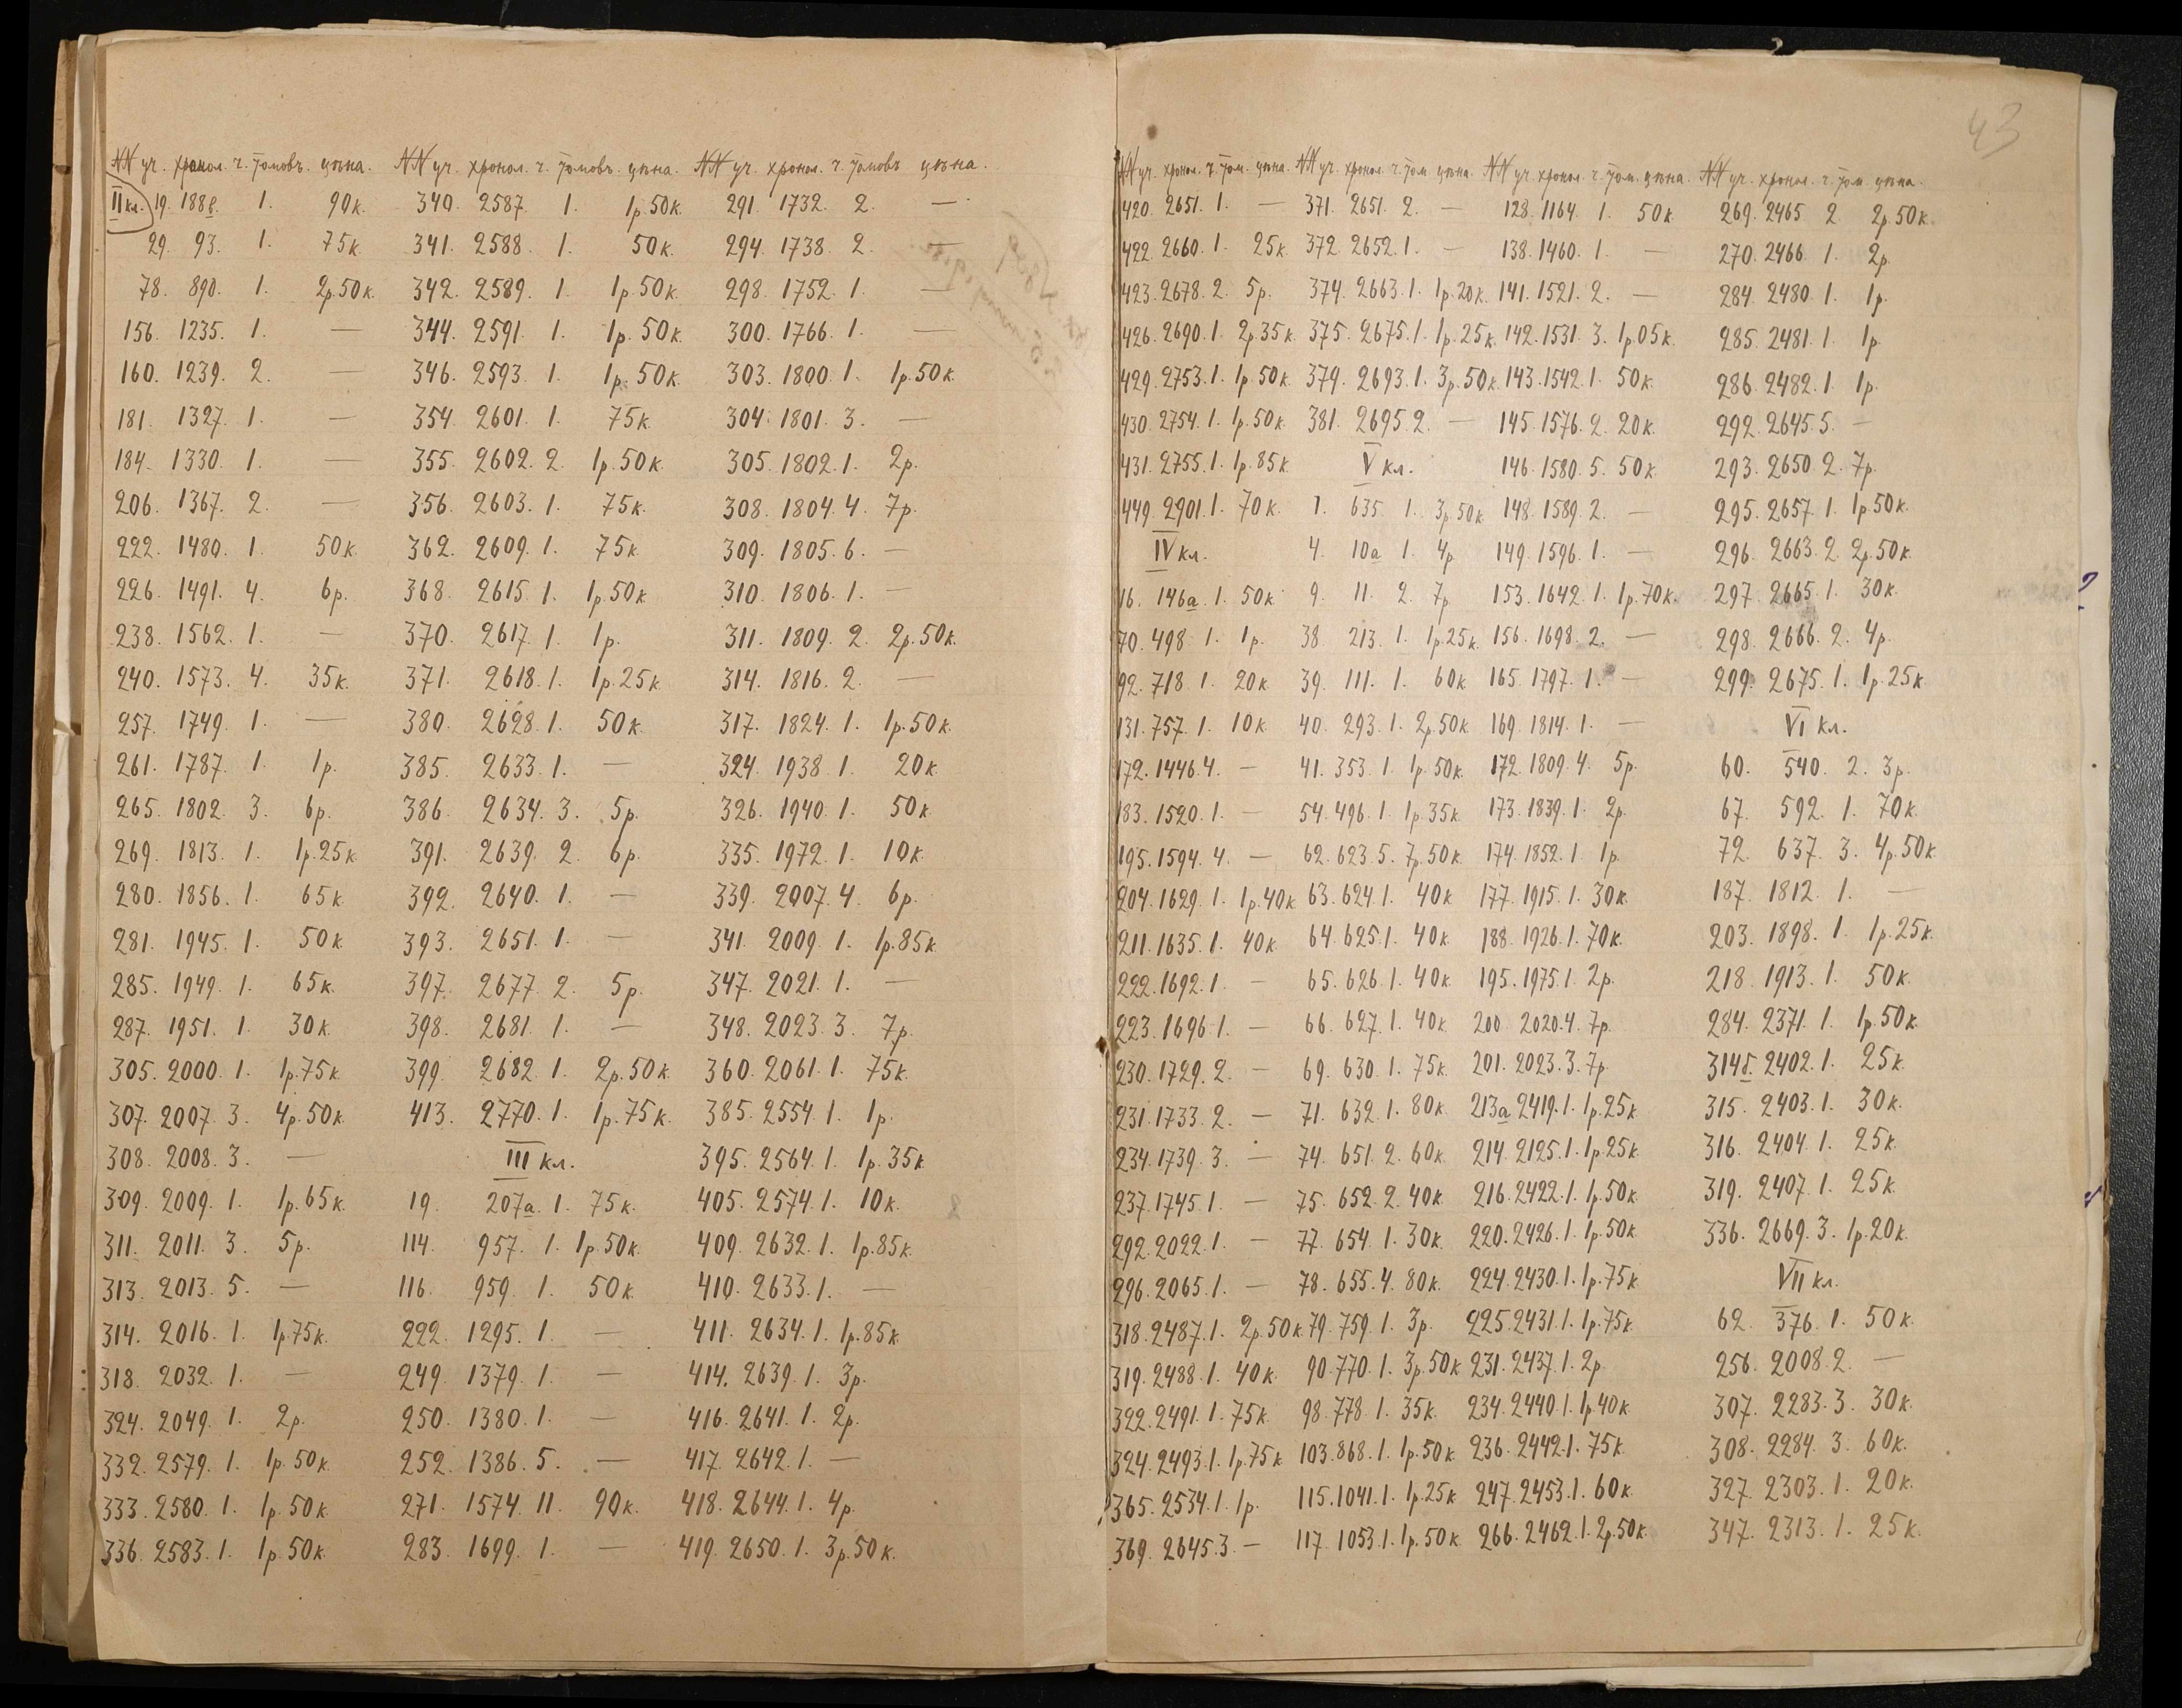 43
NN уч. хронол. ч. томовъ. цѣна.
II кл. 19. 188в. 1. 90к.
29. 93. 1. 75к
78. 890. 1. 2р.50к.
156. 1235. 1. —
160. 1239. 2. —
181. 1327. 1. —
184. 1330. 1. —
206. 1367. 2. —
222. 1480. 1. 50к.
226. 1491. 4. 6р.
238. 1562. 1. —
240. 1573. 4. 35к.
257. 1749. 1. —
261. 1787. 1. 1р.
265. 1802. 3. 6р.
269. 1813. 1. 1р.25к.
280. 1856. 1. 65к.
281. 1945. 1. 50к.
285. 1949. 1. 65к.
287. 1951. 1. 30к.
305. 2000. 1. 1р.75к.
307. 2007. 3. 4р.50к.
308. 2008. 3. —
309. 2009. 1. 1р.65к.
311. 2011. 3. 5р.
313. 2013. 5. —
314. 2016. 1. 1р.75к.
318. 2032. 1. —
324. 2049. 1. 2р.
332. 2579. 1. 1р.50к.
333. 2580. 1. 1р.50к.
336. 2583. 1. 1р.50к.
NN уч. хронол. ч. томовъ. цѣна.
340. 2587. 1. 1р.50к.
341. 2588. 1. 50к.
342. 2589. 1. 1р.50к.
344. 2591. 1. 1р.50к.
346. 2593. 1. 1р.50к.
354. 2601. 1. 75к.
355. 2602. 2. 1р.50к.
356. 2603. 1. 75к.
362. 2609. 1. 75к.
368. 2615. 1. 1р.50к.
370. 2617. 1. 1р.
371. 2618. 1. 1р.25к.
380. 2628. 1. 50к.
385. 2633. 1. —
386. 2634. 3. 5р.
391. 2639. 2. 6р.
392. 2640. 1. —
393. 2651. 1. —
397. 2677. 2. 5р.
398. 2681. 1. —
399. 2682. 1. 2р.50к.
413. 2770. 1. 1р.75к.
III кл.
19. 207а. 1. 75к.
114. 957. 1. 1р.50к.
116. 959. 1. 50к.
222. 1295. 1. —
249. 1379. 1. —
250. 1380. 1. —
252. 1386. 5. —
271. 1574. 11. 90к.
283. 1699. 1. —
NN уч. хронол. ч. томовъ цѣна.
291. 1732. 2. —
294. 1738. 2. —
298. 1752. 1. —
300. 1766. 1. —
303. 1800. 1. 1р.50к.
304. 1801. 3. —
305. 1802. 1. 2р.
308. 1804. 4. 7р.
309. 1805. 6. —
310. 1806. 1. —
311. 1809. 2. 2р.50к.
314. 1816. 2. —
317. 1824. 1. 1р.50к.
324. 1938. 1. 20к.
326. 1940. 1. 50к.
335. 1972. 1. 10к.
339. 2007. 4. 6р.
341. 2009. 1. 1р.85к.
347. 2021. 1. —
348. 2023. 3. 7р.
360. 2061. 1. 75к.
385. 2554. 1. 1р.
395. 2564. 1. 1р.35к.
405. 2574. 1. 10к.
409. 2632. 1. 1р.85к.
410. 2633. 1. —
411. 2634. 1. 1р.85к.
414. 2639. 1. 3р.
416. 2641. 1. 2р.
417. 2642. 1. —
418. 2644. 1. 4р.
419. 2650. 1. 3р.50к.
NN уч. хронол. ч. том. цѣна.
420. 2651. 1. —
422. 2660. 1. 25к.
423. 2678. 2. 5р.
426. 2690. 1. 2р.35к.
429. 2753. 1. 1р.50к.
430. 2754. 1. 1р.50к.
431. 2755. 1. 1р.85к.
449. 2901. 1. 70к.
IV кл.
16. 146а. 1. 50к.
70. 498. 1. 1р.
92. 718. 1. 20к.
131. 757. 1. 10к.
172. 1446. 4. —
183. 1520. 1. —
195. 1594. 4. —
204. 1629. 1. 1р.40к.
211. 1635. 1. 40к.
222. 1692. 1. —
223. 1696. 1. —
230. 1729. 2. —
231. 1733. 2. —
234. 1739. 3. —
237. 1745. 1. —
292. 2022. 1. —
296. 2065. 1. —
318. 2487. 1. 2р.50к.
319. 2488. 1. 40к.
322. 2491. 1. 75к.
324. 2493. 1. 1р.75к.
365. 2534. 1. 1р.
369. 2645. 3. —
NN уч. хронол. ч. том. цѣна.
371. 2651. 2. —
372. 2652. 1. —
374. 2663. 1. 1р.20к.
375. 2675. 1. 1р.25к.
379. 2693. 1. 3р.50к.
381. 2695. 2. —
V кл.
1. 635. 1. 3р.50к.
4. 10а 1. 4р.
9. 11. 2. 7р.
38. 213. 1. 1р.25к.
39. 111. 1. 60к.
40. 293. 1. 2р.50к.
41. 353. 1. 1р.50к.
54. 496. 1. 1р.35к.
62. 623. 5. 7р.50к.
63. 624. 1. 40к.
64. 625. 1. 40к.
65. 626. 1. 40к.
66. 627. 1. 40к.
69. 630. 1. 75к.
71. 632. 1. 80к.
74. 651. 2. 60к.
75. 652. 2. 40к.
77. 654. 1. 30к.
78. 655. 4. 80к.
79. 759. 1. 3р.
90. 770. 1. 3р.50к.
98. 778. 1. 35к.
103. 868. 1. 1р.50к.
115. 1041. 1. 1р.25к.
117. 1053. 1. 1р.50к.
NN уч. хронол. ч. том. цѣна.
128. 1164. 1. 50к.
138. 1460. 1. —
141. 1521. 2. —
142. 1531. 3. 1р.05к.
143. 1542. 1. 50к.
145. 1576. 2. 20к.
146. 1580. 5. 50к.
148. 1589. 2. —
149. 1596. 1. —
153. 1642. 1. 1р.70к.
156. 1698. 2. —
165. 1797. 1. —
169. 1814. 1. —
172. 1809. 4. 5р.
173. 1839. 1. 2р.
174. 1852. 1. 1р.
177. 1915. 1. 30к.
188. 1926. 1. 70к.
195. 1975. 1. 2р.
200. 2020. 4. 7р.
201. 2023. 3. 7р.
213а 2419. 1. 1р.25к.
214. 2125. 1. 1р.25к.
216. 2422. 1. 1р.50к.
220. 2426. 1. 1р.50к.
224. 2430. 1. 1р.75к.
225. 2431. 1. 1р.75к.
231. 2437. 1. 2р.
234. 2440. 1. 1р.40к.
236. 2442. 1. 75к.
247. 2453. 1. 60к.
266. 2462. 1. 2р.50к.
NN уч. хронол. ч. том. цѣна.
269. 2465. 2. 2р.50к.
270. 2466. 1. 2р.
284. 2480. 1. 1р.
285. 2481. 1. 1р.
286. 2482. 1. 1р.
292. 2645. 5. —
293. 2650. 2. 7р.
295. 2657. 1. 1р.50к.
296. 2663. 2. 2р.50к.
297. 2665. 1. 30к.
298. 2666. 2. 4р.
299. 2675. 1. 1р.25к.
VI кл.
60. 540. 2. 3р.
67. 592. 1. 70к.
72. 637. 3. 4р.50к.
187. 1812. 1. —
203. 1898. 1. 1р.25к.
218. 1913. 1. 50к.
284. 2371. 1. 1р.50к.
314б. 2402. 1. 25к.
315. 2403. 1. 30к.
316. 2404. 1. 25к.
319. 2407. 1. 25к.
336. 2669. 3. 1р.20к.
VII кл.
62. 376. 1. 50к.
256. 2008. 2. —
307. 2283. 3. 30к.
308. 2284. 3. 60к.
327. 2303. 1. 20к.
347. 2313. 1. 25к.